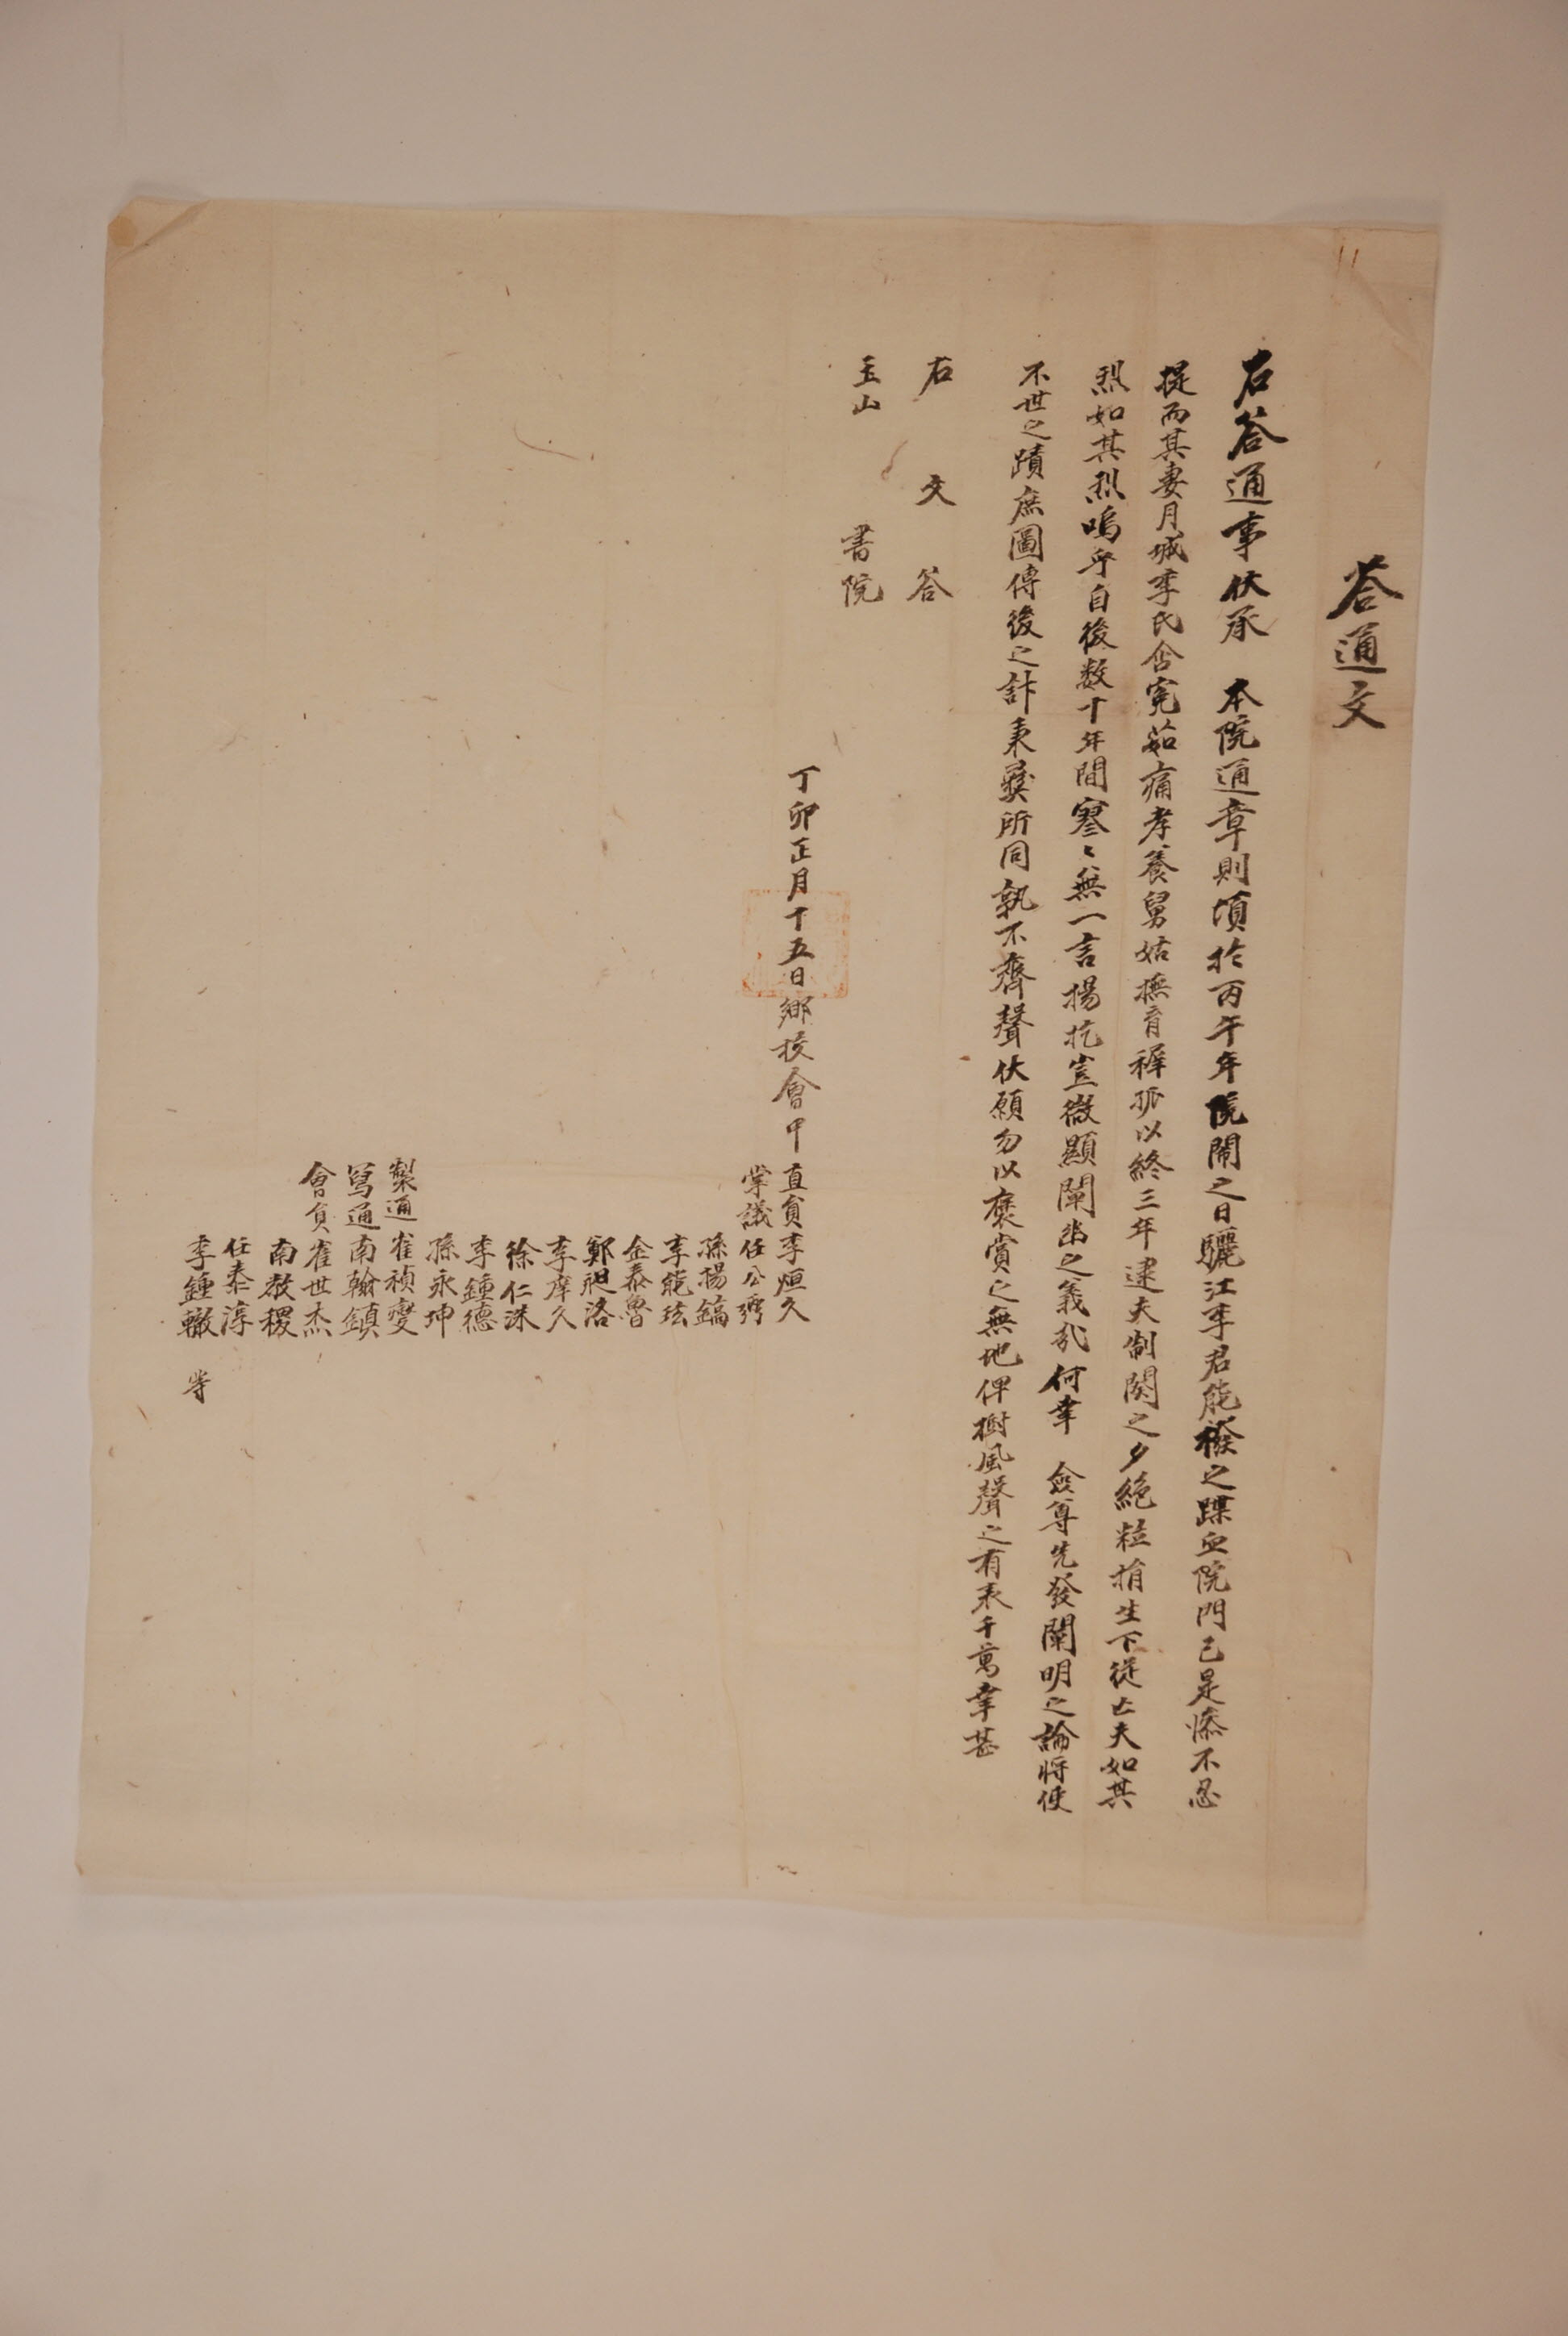 答通文
右答通事伏承 本院通章則頃於丙午年院鬧之日驪江李君能撥之蹀血院門已是慘不忍
提而其妻月城李氏含寃茹痛孝養舅姑撫育穉孤以終三年逮夫制闋之夕絶粒捐生下從亡夫如其
烈如其烈嗚乎自後数十年間寥〻無一言揚扢豈微顯闡幽之義哉何幸 僉尊先發闡明之論將使
不世之蹟庶圖傳後之計秉彛所同孰不齊聲伏願勿以褒賞之無地俾樹風聲之有表千萬幸甚
右文答
玉山書院
丁卯正月十五日鄕校會中直員李烜久
掌議任公弼
孫揚鎬
李能玹
金泰魯
鄭昶洛
李庠久
徐仁洙
李鍾德
孫永坤
製通崔禎燮
寫通南翰鎮
會員崔世杰
南敎稷
任泰淳
李鍾轍 等